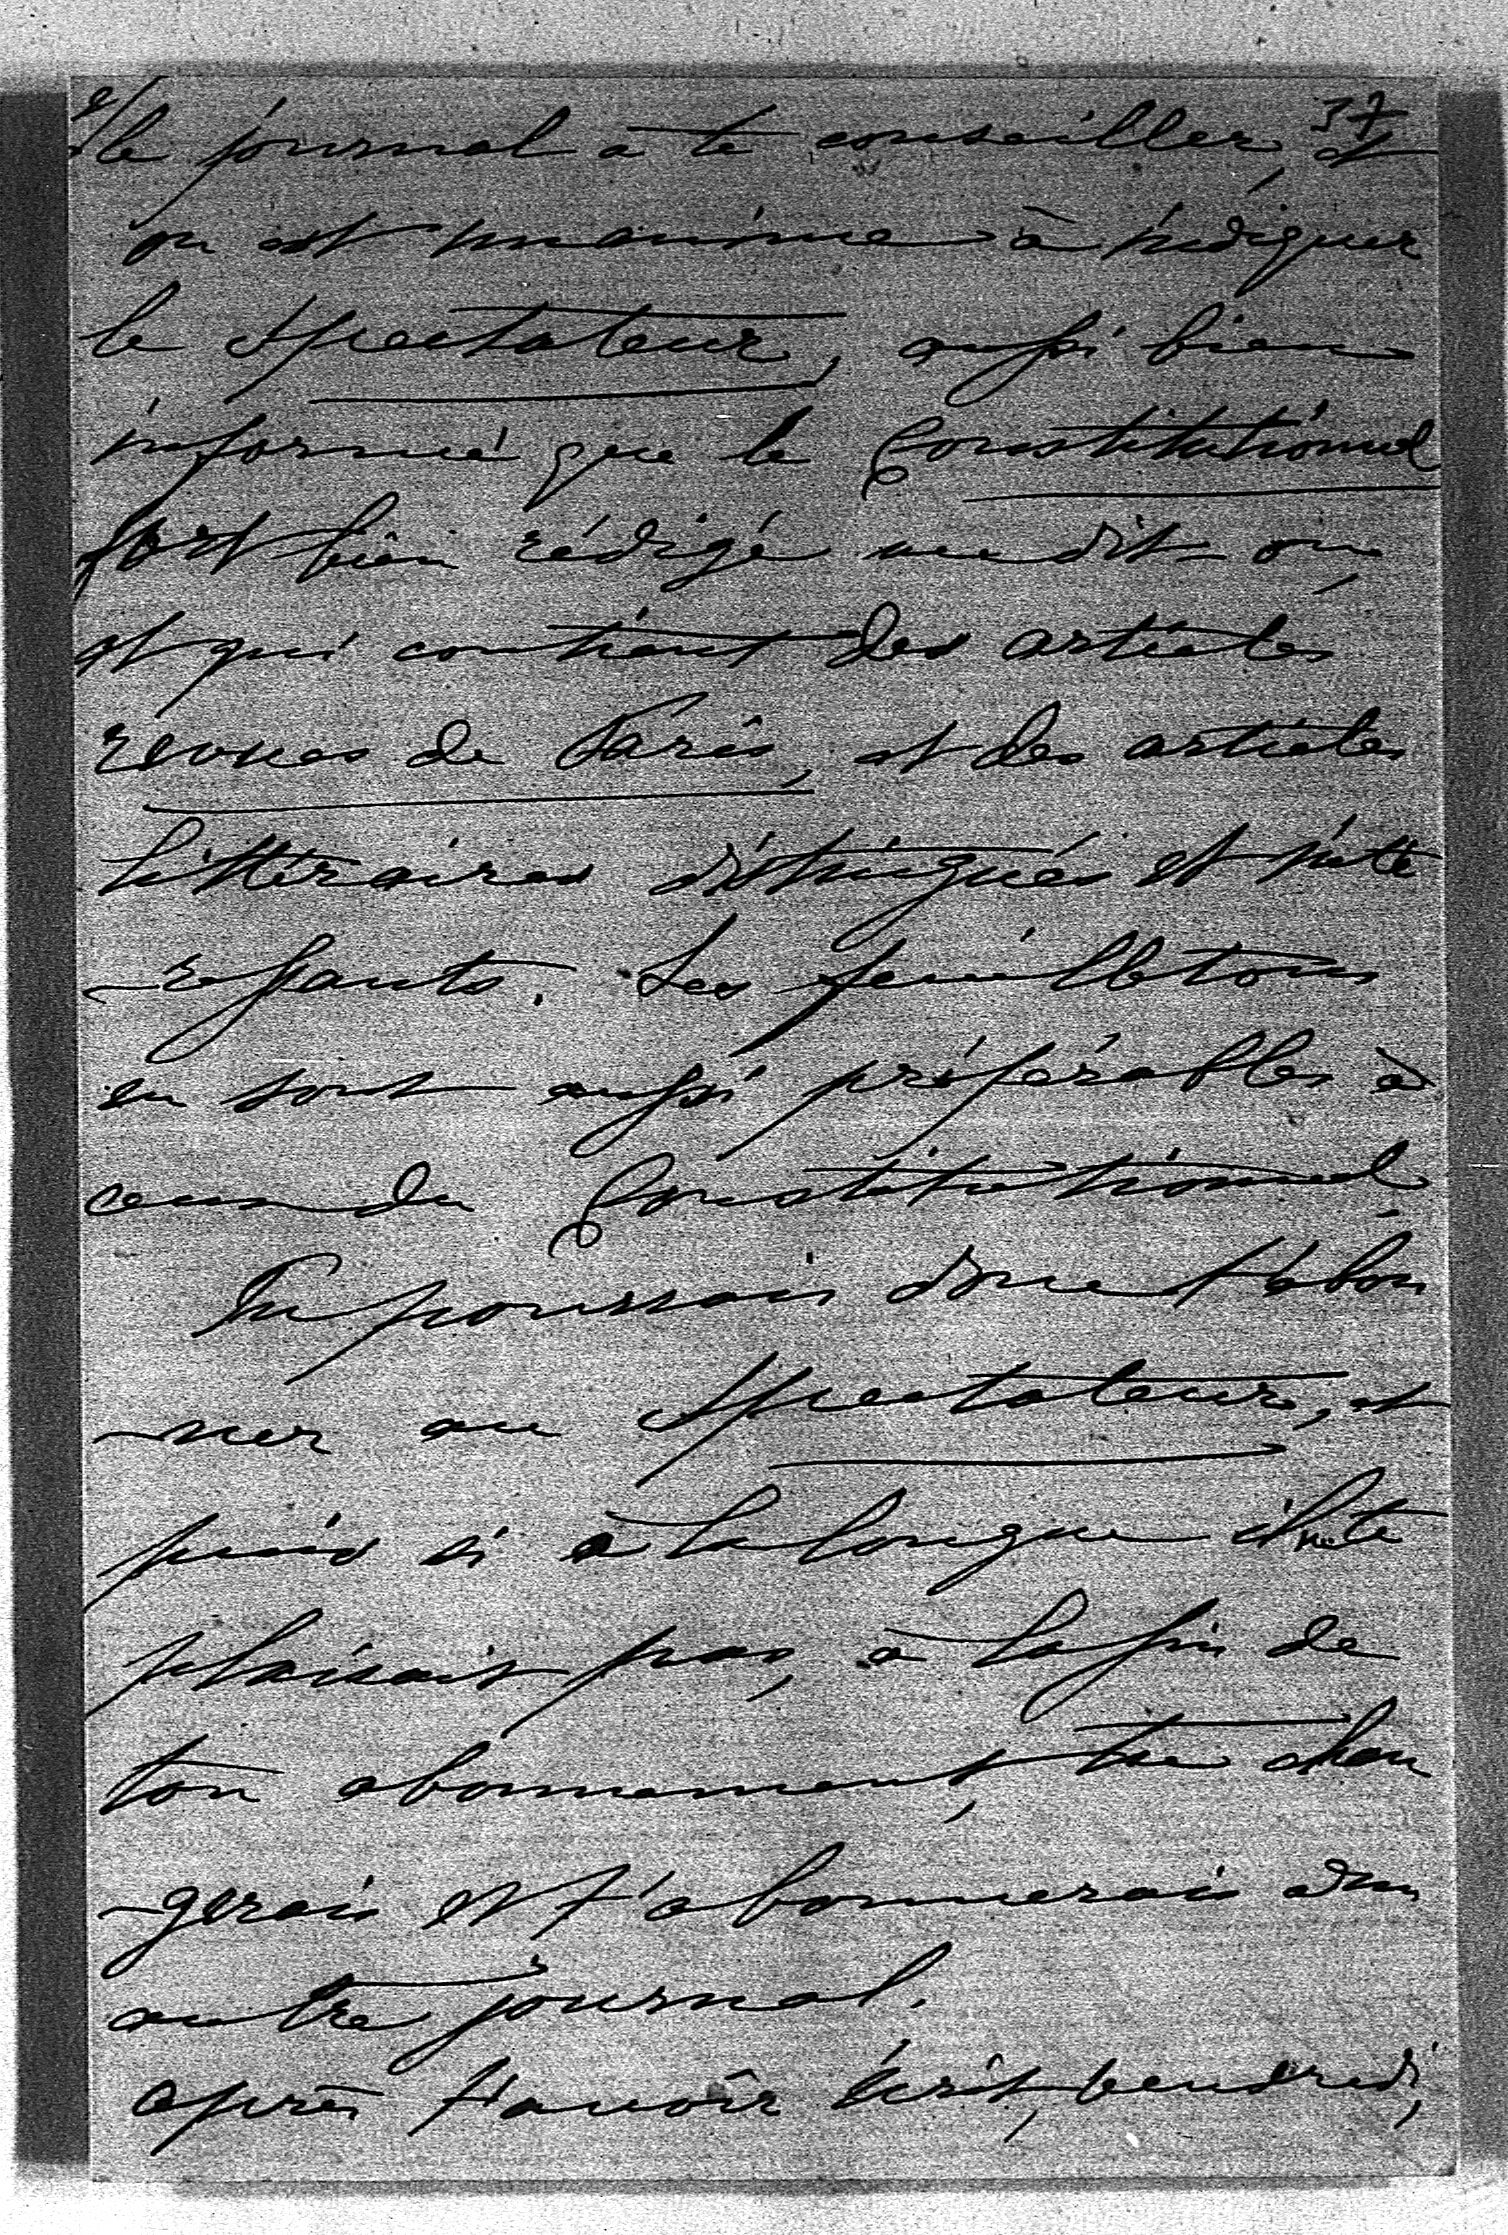 37
le journal à te conseiller, et
on est unanime à indiquer
le Spectateur, aussi bien
informé que le Constitutionnel
fort bien rédigé me dit on,
et qui contient des articles
revues de Paris, et des articles
littéraires distingués et inté
-ressants. Les feuilletons
en sont aussi préférables à
ceux du Constitutionnel.
Tu pourrais donc t'abon
-ner au Spectateur, et
puis si à la longue il ne te
plaisait pas, à la fin de
ton abonnement, tu chan
-gerais et t'abonnerais à un
autre journal.
après t'avoir écrit, vendredi,